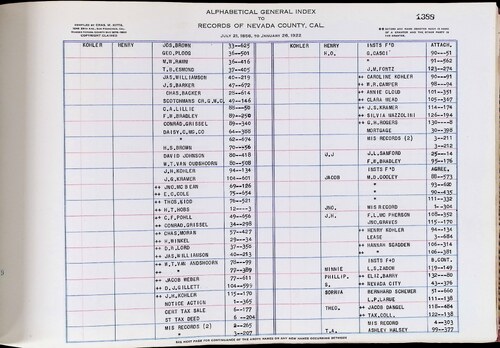 ALPHABETICAL GENERAL INDEX
TO
RECORDS OF NEVADA COUNTY, CAL.
1355
COPYRIGHT CLAIMED
JULY 21, 1856, TO JANUARY 26, 1922
KOHLER HENRY JOS.BROWN 33—625 KOHLER HENRY INSTS F'D ATTACH.
GEO.PLOOG 36—401 H.D. G.CASCI 90—51
W.H.RAHN 36—416 " 91—562
T.H.ESMOND 37—405 J.M.FONTZ 123—274
JAS.WILLIAMS 40—219 ++ CAROLINE KOHLER 90—91
J.S.BARKER 47—672 ++ W.R.CAMPER 98—94
CHAS.BACKER 28—614 ++ ANNIE CLOUD 101—351
SCOTCHMANS CR.G.M.C. 49—146 ++ CLARA HEAD 105—347
C.A.LILLIE 88—50 ++ J.S.KRAMER 114—174
F.W.BRADLEY 89—250 ++ SILVIA NAZZOLINI 126—194
CONRAD.GRISSEL 89—340 ++ G.H.ROGERS 130—8
DAISY.G.MG.CO 64—388 MORTGAGE 30—398
" 62—674 MIS RECORDS (2) 3—211
H.B.BROWN 70—56 3—212
DAVID JOHNSON 80—418 J.J J.L.SANFORD 25—14
W.T.VAN OUDSHOORN 80—508 F.W.BRADLEY 95—176
J.H.KOHLER 94—134 INSTS F'D AGREE.
J.N.KRAMER 104—601 JACOB M.D.COOLEY 88—573
++ JNO.MC BEAN 69—126 " 93—620
++ E.C.COLE 75—654 " 90—435
++ THOS.KIDD 76—521 " 111—332
++ H.T.HOBG 12—3 JNO. MIS RECORD 1—304
++ C.F.POHLL 49—656 J.H. F.L.MC PHERSON 108—352
++ CONRAD.GRISSEL 34—298 JNO.GRAVES 115—170
++ CHAS.MORAN 57—427 ++ HENRY KOHLER 94—134
++ H.WINKEL 29—34 LEASE 3—684
++ D.H.LORD 37—350 ++ HANNAH SCADDEN 106—314
++ JAS.WILLIAMSON 40—213 ++ " 106—315
++ W.T.VAN OUDSHOORN 77—99 INSTS F'D B.CONT.
++ " 77—389 MINNIE L.S.EADON 119—149
++ JACOB WEBER 77—611 PHILLIP. ++ ELIZ.BARRY 132—80
++ D.J.GILLETT 104—599 S. ++ NEVADA CITY 43—376
++ J.H.KOHLER 115—170 SOPHIA BERNHARD SCHEMER 51—660
NOTICE ACTION 1—365 L.P.LARUE 111—138
CERT TAX SALE 6—177 THEO. ++ JACOB DANGEL 118—484
ST TAX DEED 6—204 ++ TAX.COLL. 122—138
MIS RECORDS (2) 2—265 MIS RECORD 4—303
3—207 T.A. ASHLEY HALSEY 99—377